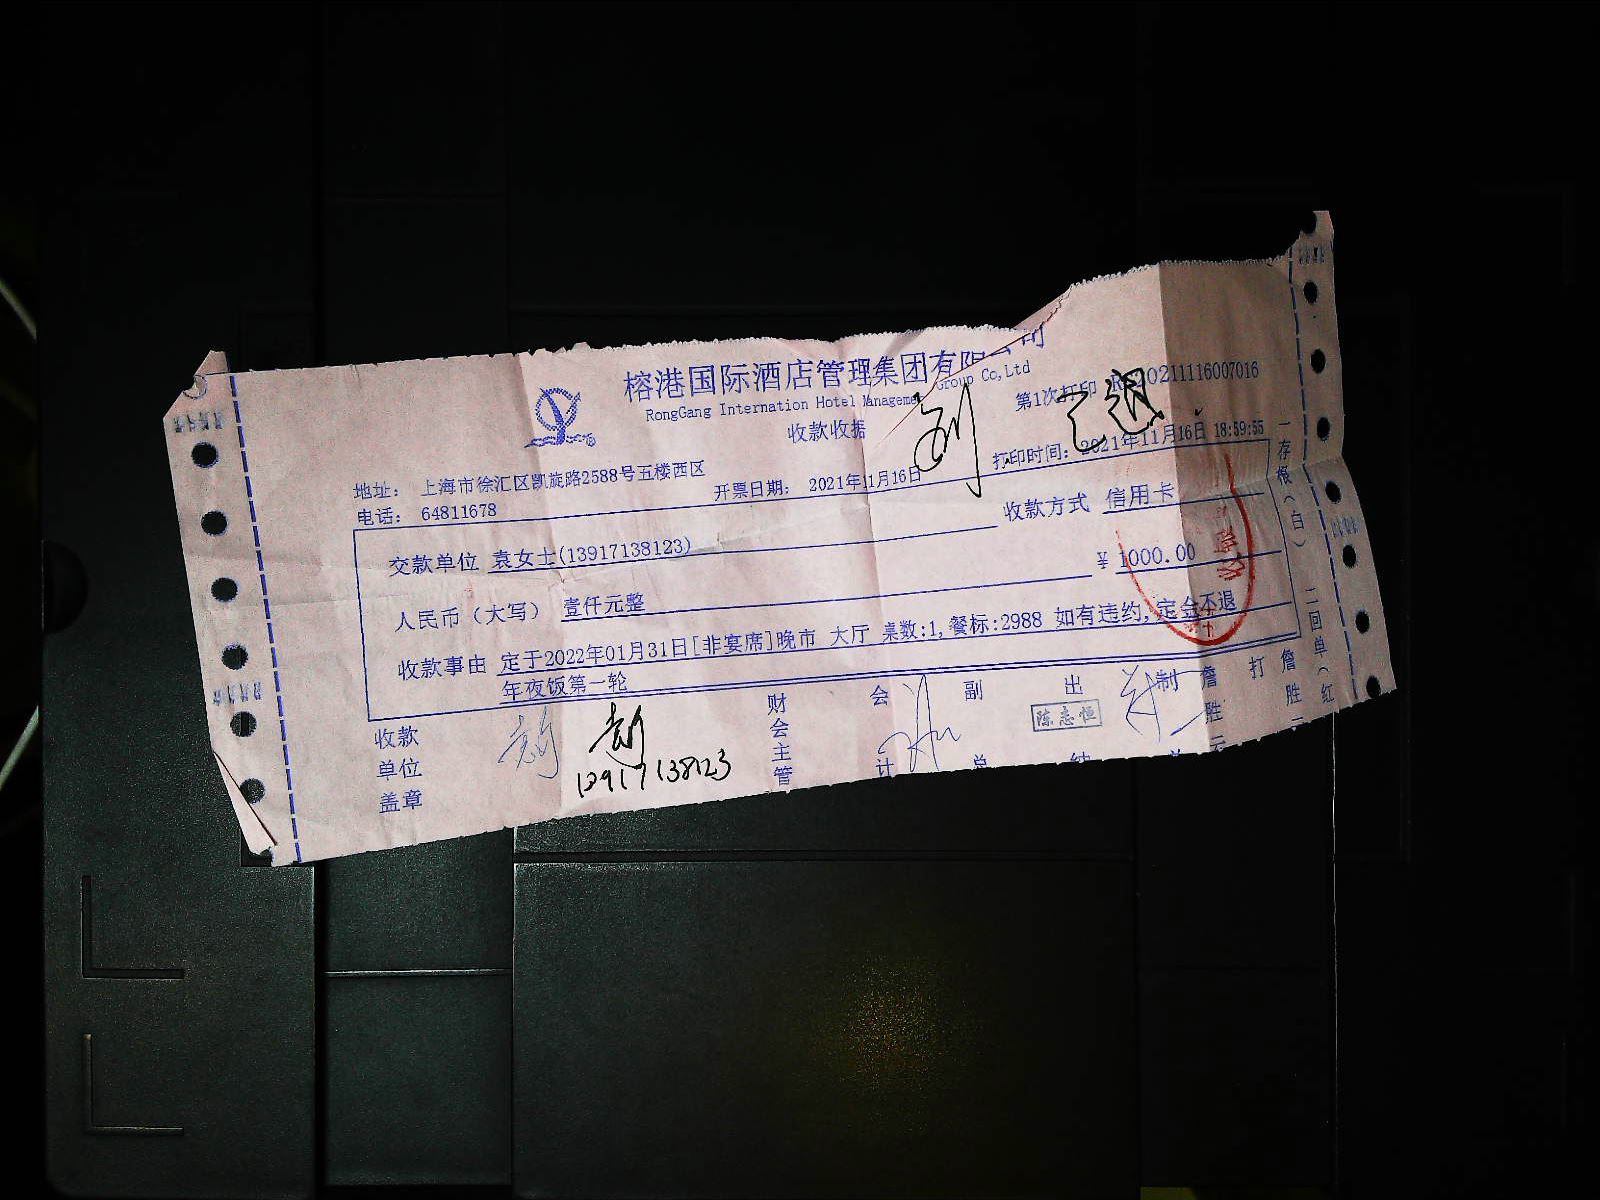 榕港国际酒店管理集团有限公司
RongGang Internation Hotel Management Group Co,Ltd
收款收据
第1次打印
20211116007016
地址: 上海市徐汇区凯旋路2588号五楼西区
电话: 64811678
开票日期: 2021年11月16日
打印时间: 2021年11月16日 18:59:55
交款单位 袁女士(13917138123)
收款方式 信用卡
人民币(大写) 壹仟元整
¥ 1000.00
收款事由 定于2022年01月31日[非宴席]晚市 大厅 桌数:1,餐标:2988 如有违约,定金不退
年夜饭第一轮
收款单位盖章
13917138123
财会主管
会计
副总
出纳
陈志恒
制单
詹胜元
打
詹胜元
一存根(白) 二回单(红